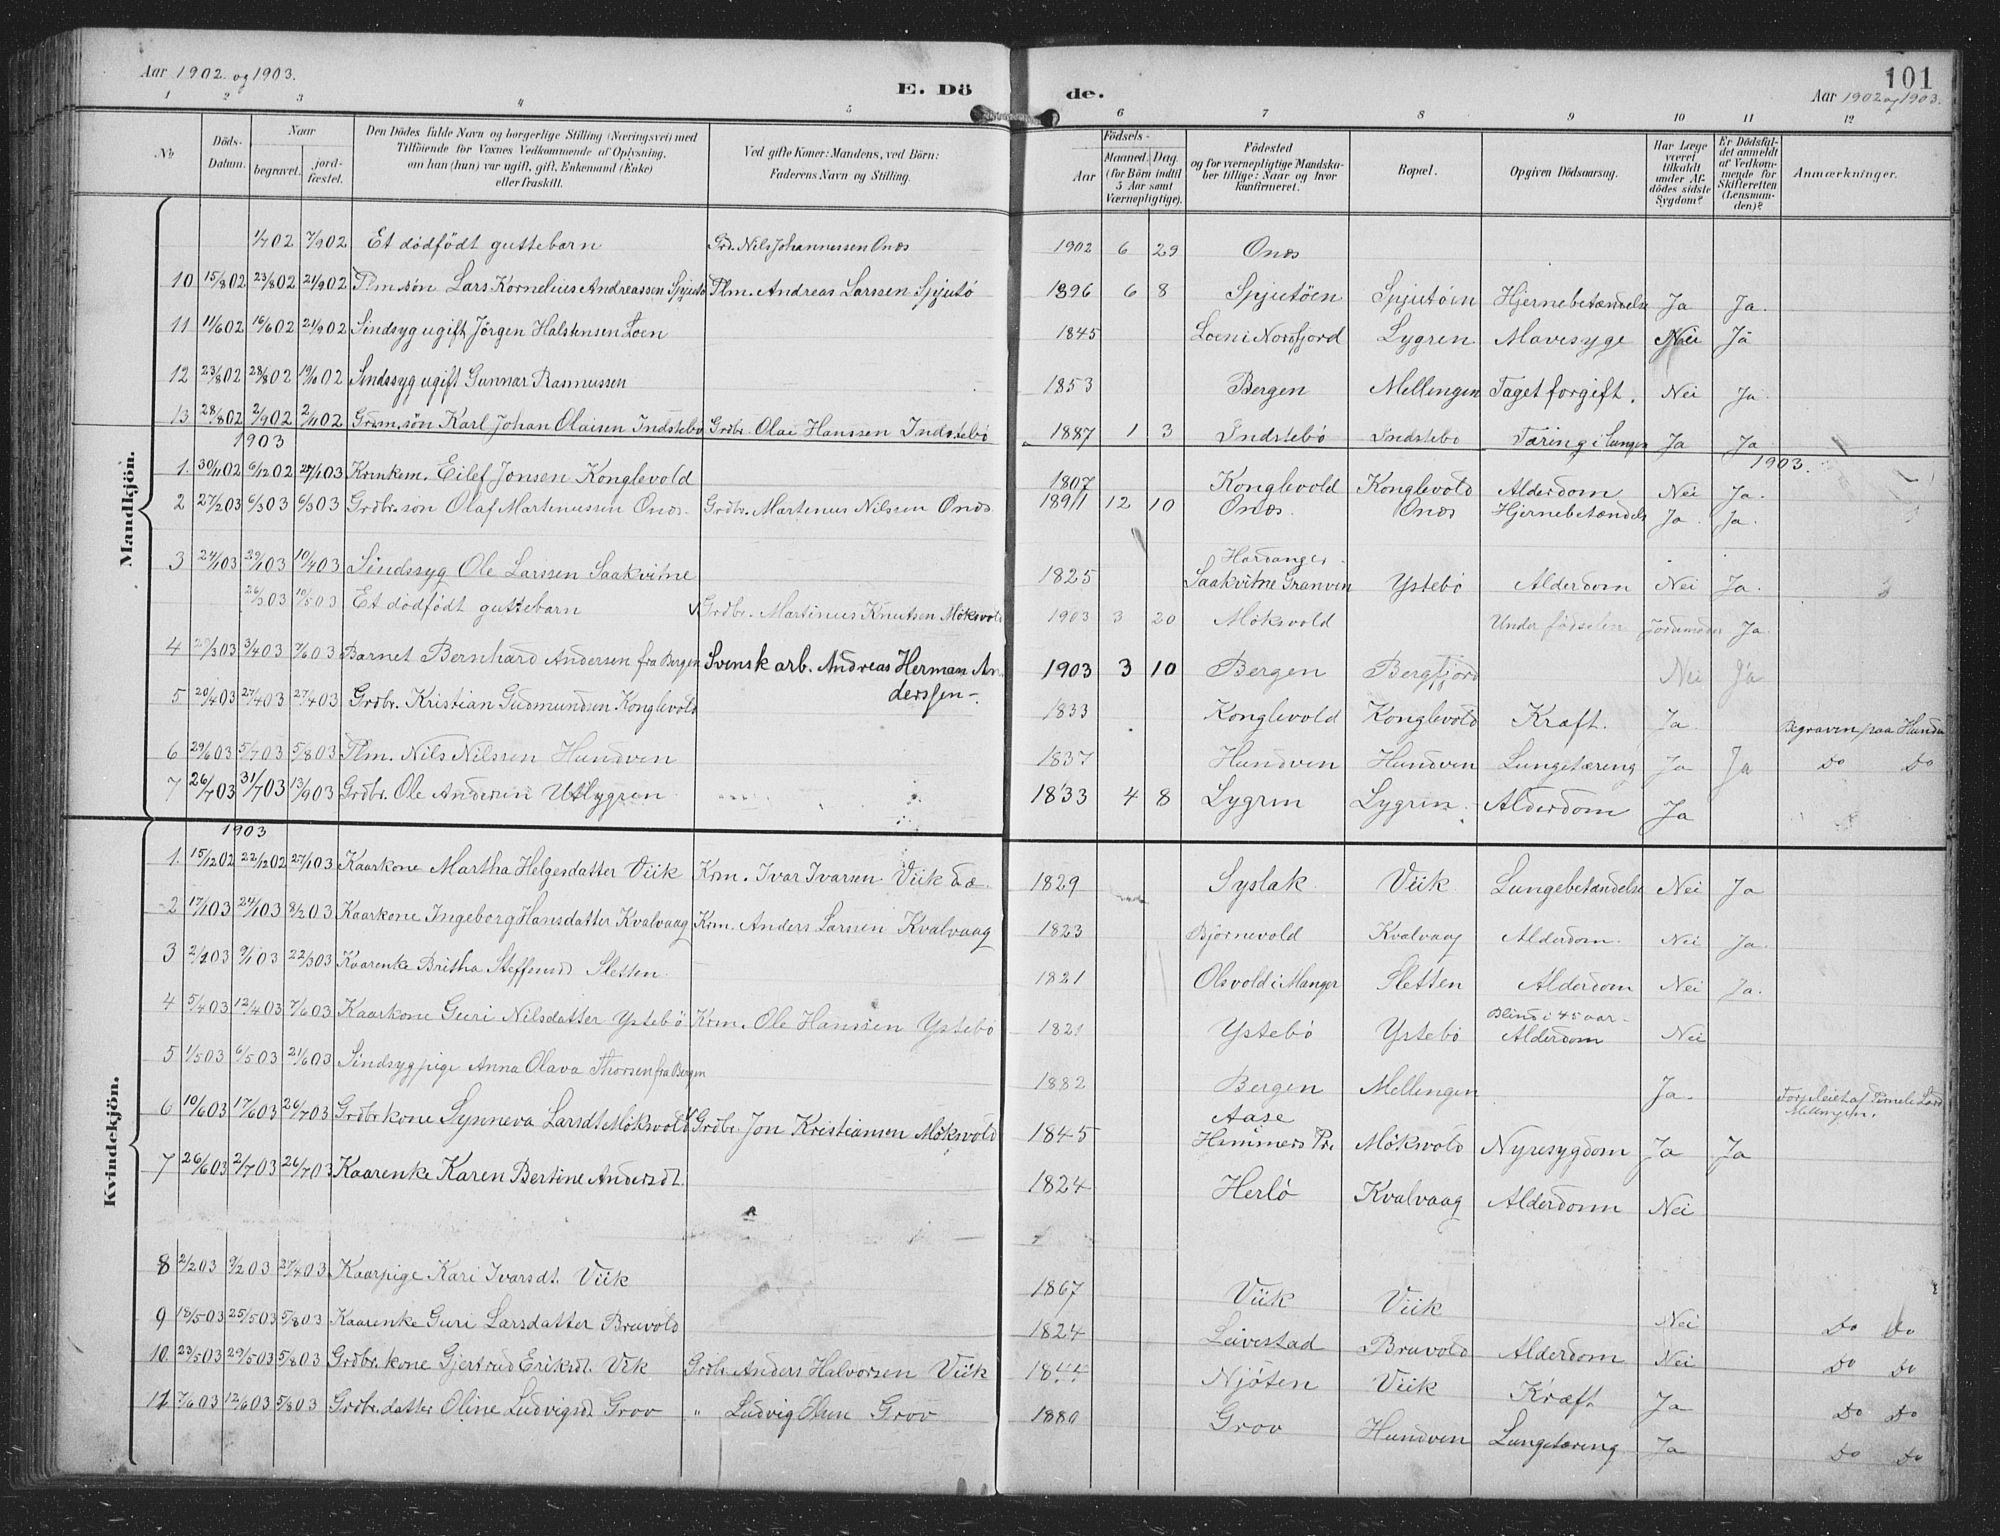 Aar 1902 og 1903.
E. Dö
de.
101
Aar 1902 og 1903.
1 2 3 4 5 6 7 8 9 10 11 12
No
Döds-Datum.
Naar
begravet.
jord-fæstet.
Den Dödes fulde Navn og borgerlige Stilling (Næringsvei) med
Tilföiende for Voxnes Vedkommende af Oplysning,
om han (hun) var ugift, gift, Enkemand (Enke)
eller fraskilt.
Ved gifte Koner: Mandens, ved Börn:
Faderens Navn og Stilling.
Födsels-
Aar
Maaned. Dag.
(for Börn indtil
5 Aar samt
Værnepligtige).
Födested
og for værnepligtige Mandska-
ber tillige: Naar og hvor
konfirmeret.
Bopæl.
Opgiven Dödsaarsag.
Har Læge
været
tilkaldt
under Af-
dödes sidste
Sygdom?
Er Dödsfal-
det anmeldt
af Vedkom-
mende for
Skifteretten
(Lensman-
den)?
Anmærkninger.
Mandkjön.
1/7 02 7/9 02 Et dödfödt guttebarn Grd. Nils Johannessen Onæs 1902 6 29 Onæs
10 15/8 02 23/8 02 21/9 02 Plm. sön Lars Kornelius Andreassen Spjutö Plm. Andreas Larssen Spjutö 1896 6 8 Spjutöen Spjutöen Hjernebetændelse Ja Ja.
11 11/6 02 16/6 02 21/9 02 Sindsyg ugift Jörgen Halstensen Loen 1845 Loen i Nordfjord Lygren Mavesyge Nei Ja
12 23/8 02 28/8 02 19/10 02 Sindssyg ugift Gunnar Rasmussen 1853 Bergen Mellingen Taget forgift. Nei Ja.
13 28/8 02 2/9 02 2/11 02 Grdm. sön Karl Johan Olaisen Indstebö Grdbr. Olai Hanssen Indstebö 1887 1 3 Indstebö Indstebö Tæring i Lungen Ja Ja
1903
1903.
1. 30/11 02 6/12 02 27/1 03 Kornkem. Eilef Jonsen Konglevold 1807 Konglevold Konglevold Alderdom Nei Ja.
2 27/2 03 6/3 03 6/3 03 Grdbr. sön Olaf Martenussen Onæs. Grdbr. Martenus Nilssen Onæs. 1891 12 10 Onæs. Onæs Hjernebetændels Ja. Ja.
3 24/1 03 29/1 03 10/4 03 Sindssyg Ole Larssen Saakvitne 1825 Hardanger Saakvitne Granven Ystebö Alderdom Nei Ja.
26/3 03 10/5 03 Et dödfödt guttebarn Grdbr. Martinus Knutsen Mökvold 1903 3 20 Mökvold Under födselen Jordmoder Ja.
4 28/3 03 3/4 03 7/6 03 Barnet Bernhard Andersen fra Bergen Svensk arb. Andreas Herman An-
derssen 1903 3 10 Bergen Bergfjord Nei Ja
5 20/4 03 27/4 03 27/4 03 Grdbr. Kristian Gudmundsen Konglevold 1833 Konglevold Konglevold Kræft. Ja. Begraven paa Hundv
6 29/6 03 5/7 03 5/8 03 Plm. Nils Nilssen Hundven 1837 Hundven Hundven Lungetæring Ja Ja Do Do
7 26/7 03 31/7 03 13/9 03 Grdbr. Ole Andersen Utlygren 1833 4 8 Lygrin Lygrin. Alderdom Ja
Kvindekjön.
1903
1. 15/12 02 22/12 02 27/1 03 Kaarkone Martha Helgesdatter Viik Krm. Ivar Ivarsen Viik 1829 Syslak Viik Lungebetændelse Nei Ja
2 17/1 03 24/1 03 8/2 03 Kaarkone Ingeborg Hansdatter Kvalvaag Krm. Anders Larsen Kvalvaag 1823 Björnevold Kvalvaag Alderdom. Nei Ja.
3 2/1 03 9/1 03 22/3 03 Kaarenke Britha Steffensd Sletten 1821 Olsvold i Manger Sletten Alderdom Nei Ja.
4 5/4 03 12/4 03 7/6 03 Kaarkone Guri Nilsdatter Ystebö Krm. Ole Hansen Ystebö 1821 Ystebö Ystebö Blind i 45 aar. Alderdom Nei
5 1/5 03 6/5 03 21/6 03 Sindsygpige Anna Olava Thorsen fra Bergen 1882 Bergen Mellingen Ja.
Mellingen.
6 10/6 03 17/6 03 26/7 03 Grdbrkone Synneva Larsdt Mökvold Grdbr. Jon Kristiansen Mökvold 1845 Aase Hammers Pr. Mökvold Nyresygdom Ja Ja
7 26/6 03 2/7 03 26/7 03 Kaarenke Karen Bertine Andersdt. 1824 Herlö Kvalvaag Alderdom Nei
8 2/2 03 9/2 03 27/4 03 Kaarpige Kari Ivarsdt. Viik 1867 Viik Viik Nei Do Do
9 18/5 03 25/5 03 5/8 03 Kaarenke Guri Larsdatter Bruvold 1824 Leivestad Bruvold Alderdom Nei Do Do
10 23/5 03 29/5 03 5/8 03 Grdbrkone Gjertrud Eriksdt. Vik Grdbr. Anders Halvorsen Viik 1844 Njöten Viik Kræft Ja Do Do
11 7/6 03 12/6 03 5/8 03 Grdbr. datter Oline Ludvigsd Grov " Ludvig Olsen Grov 1880 Grov Hundven Lungetæring Ja Do Do